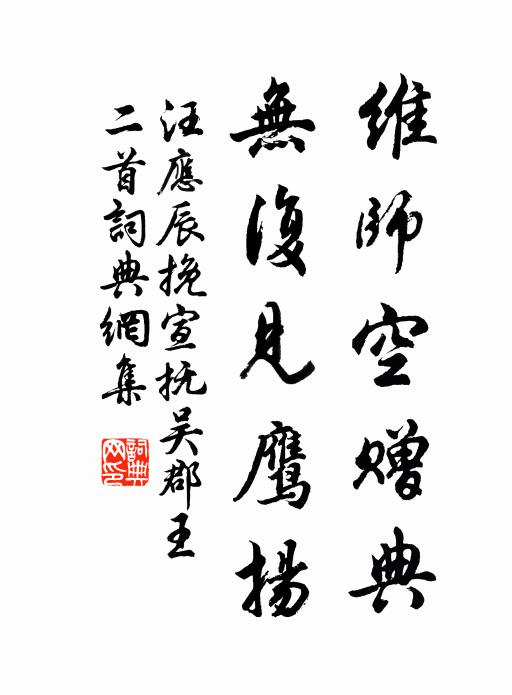 維師空贈典
無復見鷹揚
汪應辰挽宣抚吴郡王
二首詞典網集
詞典網印